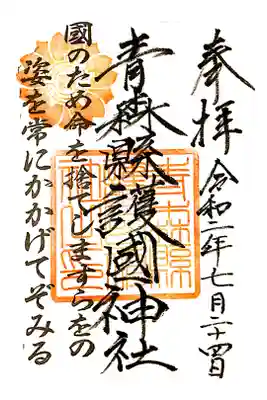 奉拝
令和二年七月二十四日
青森縣護國神社
國のため命を捨てしますらをの
姿を常にかかげてぞみる